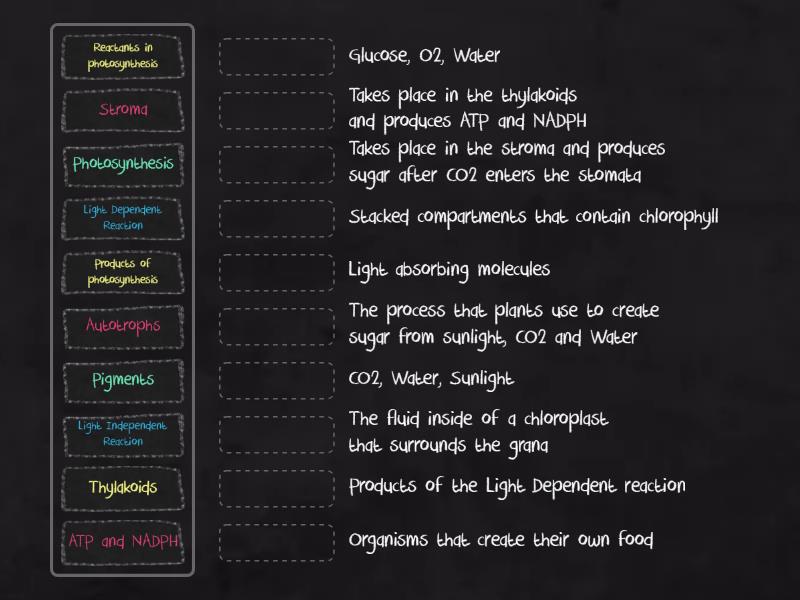 Reactants in
photosynthesis
Stroma
Photosynthesis
Light Dependent
Reaction
Products of
photosynthesis
Autotrophs
Pigments
Light Independent
Reaction
Thylakoids
ATP and NADPH
Glucose, O2, Water
Takes place in the thylakoids
and produces ATP and NADPH
Takes place in the stroma and produces
sugar after CO2 enters the stomata
Stacked compartments that contain chlorophyll
Light absorbing molecules
The process that plants use to create
sugar from sunlight, CO2 and Water
CO2, Water, Sunlight
The fluid inside of a chloroplast
that surrounds the grana
Products of the Light Dependent reaction
Organisms that create their own food